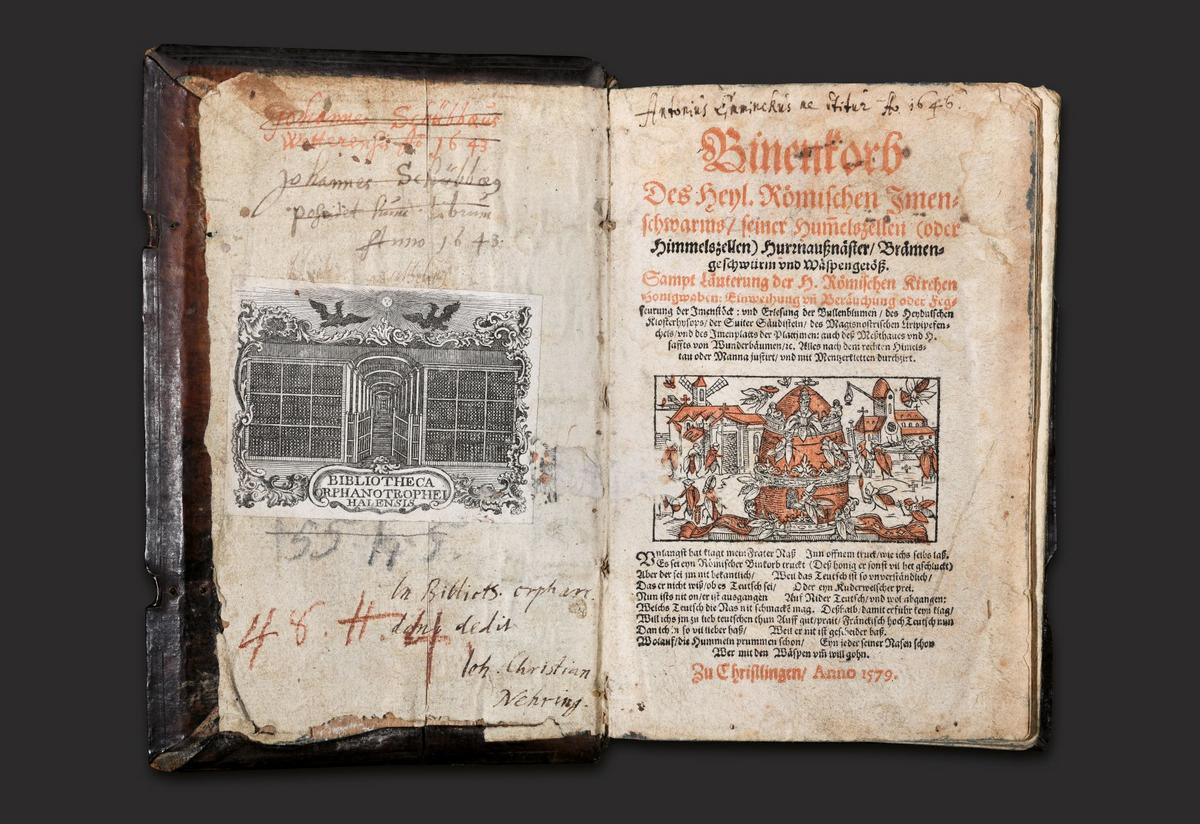 Johannes Schübbæus
Wetterensis Ao 1643
Johannes Schübbæg
possidet hunc Librum
Anno 1643.
BIBLIOTHECA
ORPHANOTROPHEI
HALENSIS
In Biblioth. orphan.
dono dedit
48. H. 4
Joh. Christian
Nehring.
Antonius utitur Ao 1646.
Binenkorb
Des Heyl. Römischen Imen-
schwarms/ seiner Hum̃elszellen (oder
Himmelszellen) Hurrnaußnäster/ Brämen-
geschwürm vnd Wäspengetöß.
Sampt Läuterung der H. Römischen Kirchen
Honigwaben: Einweihung vñ Beräuchung oder Feg-
feurung der Imenstöck: vnd Erlesung der Bullenblumen/ des Heydnischen
Klosterhysops/ der Suiter Säudisteln/ des Magisnostrischen
chels/ vnd des Imenplatts der Plattimen: auch deß Meßthaues vnd H.
saffts von Wunderbäumen/ ꝛc. Alles nach dem rechten Himels-
tau oder Manna justirt/ vnd mit Mentzerkletten durchzirt.
Vnlangst hat klagt mein Frater Naß Inn offnem truck/ wie ichs selbs laß.
Es sei eyn Römischer Binkorb truckt (Deß honig er sonst vil het gschluckt)
Aber der sei jm nit bekantlich/ Weil das Teutsch ist so vnverständlich/
Das er nicht wiß/ ob es Teutsch sei/ Oder eyn Kuderwelscher prei.
Nun ists nit on/ er ist außgangen Auf Nider Teutsch/ vnd wol abgangen:
Welchs Teutsch die Nas nit schmackẽ mag. Deßhalb/ damit erfuhr keyn klag/
Will ichs jm zu lieb teutschen thun Auff gut/ prait/ Fränckisch hoch Teutsch nun
Dan ich jn so vil lieber haß/ Weil er nit ist gescheider baß.
Wolauf/ die Hummeln prummen schon/ Eyn jeder seiner Nasen schon
Wer mit den Wäspen vm̃ will gohn.
Zu Christlingen/ Anno 1579.